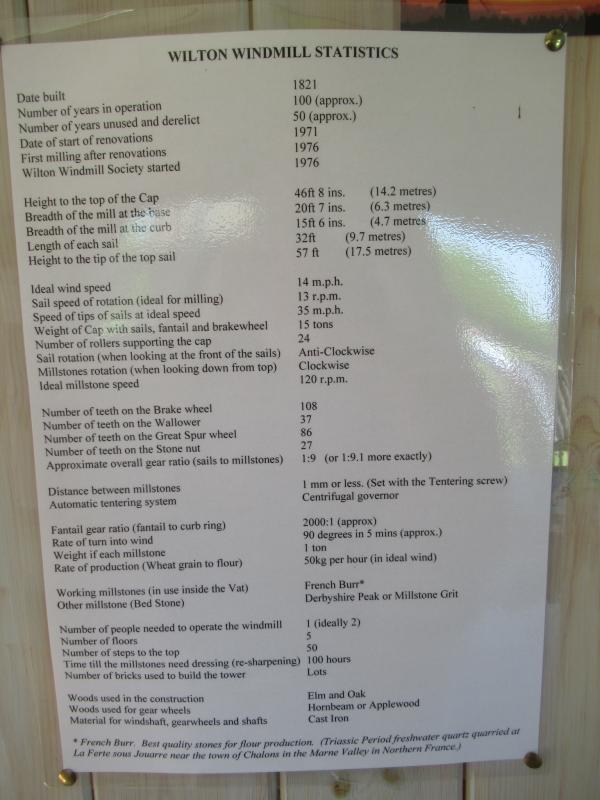 WILTON WINDMILL STATISTICS
Date built 1821
Number of years in operation 100 (approx.)
Number of years unused and derelict 50 (approx.)
Date of start of renovations 1971
First milling after renovations 1976
Wilton Windmill Society started 1976
Height to the top of the Cap 46ft 8 ins. (14.2 metres)
Breadth of the mill at the base 20ft 7 ins. (6.3 metres)
Breadth of the mill at the curb 15ft 6 ins. (4.7 metres
Length of each sail 32ft (9.7 metres)
Height to the tip of the top sail 57 ft (17.5 metres)
Ideal wind speed 14 m.p.h.
Sail speed of rotation (ideal for milling) 13 r.p.m.
Speed of tips of sails at ideal speed 35 m.p.h.
Weight of Cap with sails, fantail and brakewheel 15 tons
Number of rollers supporting the cap 24
Sail rotation (when looking at the front of the sails) Anti-Clockwise
Millstones rotation (when looking down from top) Clockwise
Ideal millstone speed 120 r.p.m.
Number of teeth on the Brake wheel 108
Number of teeth on the Wallower 37
Number of teeth on the Great Spur wheel 86
Number of teeth on the Stone nut 27
Approximate overall gear ratio (sails to millstones) 1:9 (or 1:9.1 more exactly)
Distance between millstones 1 mm or less. (Set with the Tentering screw)
Automatic tentering system Centrifugal governor
Fantail gear ratio (fantail to curb ring) 2000:1 (approx)
Rate of turn into wind 90 degrees in 5 mins (approx.)
Weight if each millstone 1 ton
Rate of production (Wheat grain to flour) 50kg per hour (in ideal wind)
Working millstones (in use inside the Vat) French Burr*
Other millstone (Bed Stone) Derbyshire Peak or Millstone Grit
Number of people needed to operate the windmill 1 (ideally 2)
Number of floors 5
Number of steps to the top 50
Time till the millstones need dressing (re-sharpening) 100 hours
Number of bricks used to build the tower Lots
Woods used in the construction Elm and Oak
Woods used for gear wheels Hornbeam or Applewood
Material for windshaft, gearwheels and shafts Cast Iron
* French Burr. Best quality stones for flour production. (Triassic Period freshwater quartz quarried at
La Ferte sous Jouarre near the town of Chalons in the Marne Valley in Northern France.)